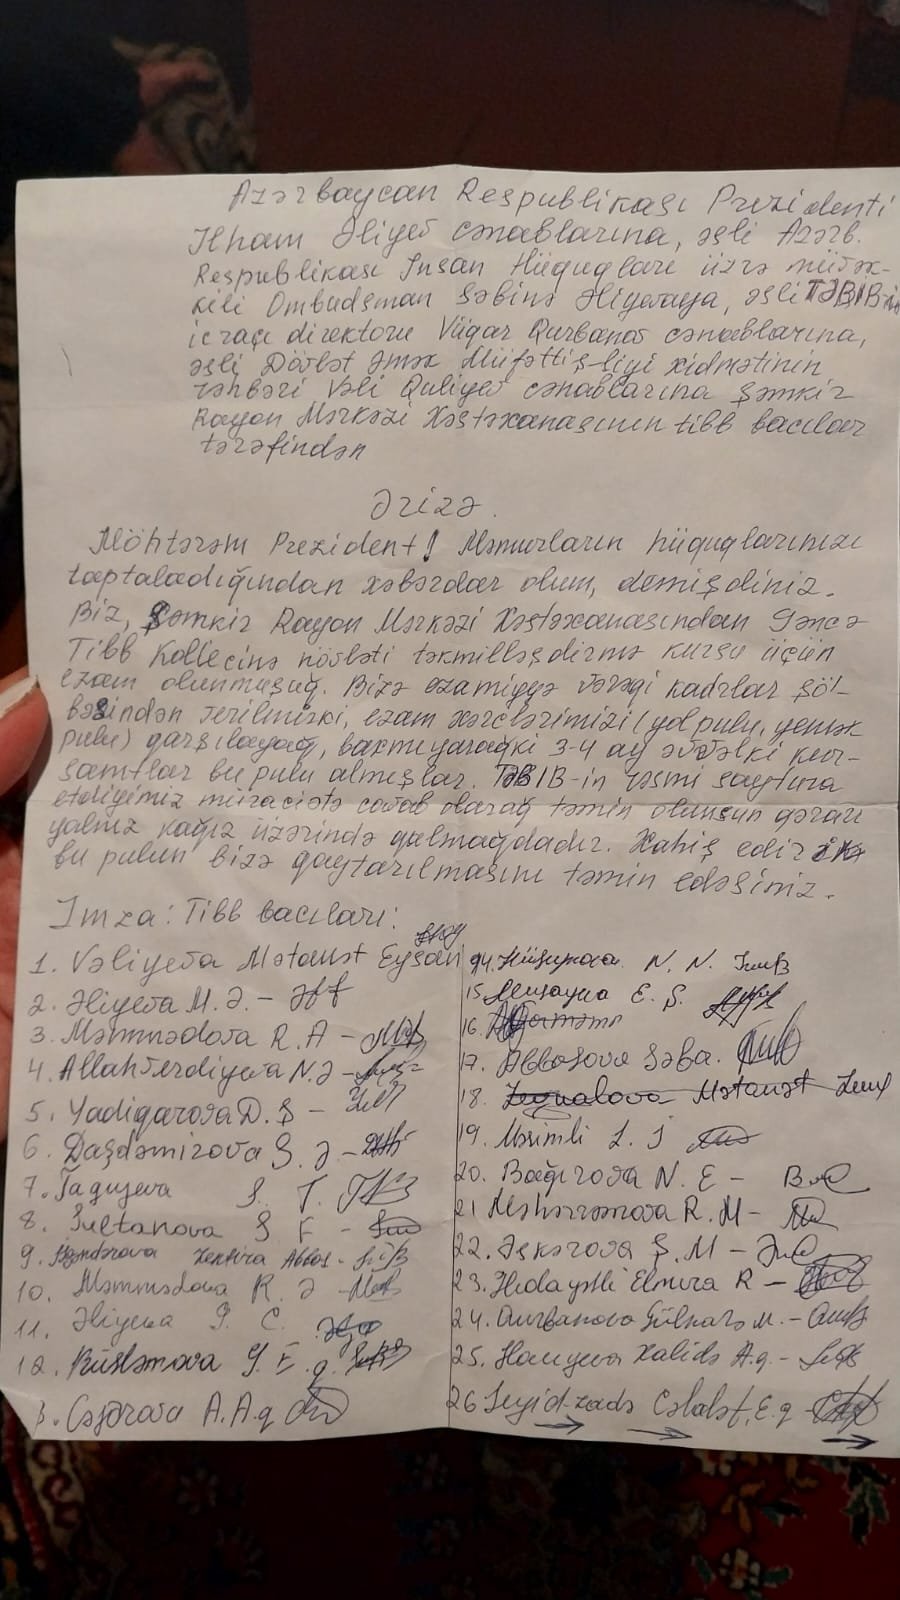 Azərbaycan Respublikası Prezidenti
İlham Əliyev cənablarına, əsli Azərb.
Respublikası İnsan Hüquqları üzrə müvək-
kili Ombudsman Səbinə Əliyevaya, əsli TƏBİB-in
icraçı direktoru Vüqar Qurbanov cənablarına,
əsli Dövlət Əmək Müfəttişliyi xidmətinin
rəhbəri Vəli Quliyev cənablarına Şəmkir
Rayon Mərkəzi Xəstəxanasının tibb bacılar
tərəfindən
Ərizə.
Möhtərəm Prezident! Məmurların hüquqlarınızı
taptaladığından xəbərdar olum, demişdiniz.
Biz, Şəmkir Rayon Mərkəzi Xəstəxanasından Gəncə
Tibb Kollecinə növbəti təkmilləşdirmə kursu üçün
ezam olunmuşuğ. Bizə ezamiyyə vərəqi kadrlar şöl-
bəsindən verilmirki, ezam xərclərimizi (yol pulu, yemək
pulu) qarşılayağ, baxmıyarağki 3-4 ay əvvəlki kur-
santlar bu pulu almışlar. TƏBİB-in rəsmi saytına
etdiyimiz müraciətə cavab olarağ təmin olunsun qərarı
yalnız kağız üzərində qalmağdadır. Xahiş edirik
bu pulun bizə qaytarılmasını təmin edəsiniz.
İmza: Tibb bacıları:
1. Vəliyeva Mətanət Eyşan
2. Əliyeva M. Ə. -
3. Məmmədova R. A -
4. Allahverdiyeva N. Ə -
5. Yadigarova D. Ş -
6. Daşdəmirova S. Ə -
7. Tagıyeva S. T.
8. Sultanova S F -
9. Abbas -
10. Məmmədova R. Ə
11. Əliyeva C.
12. Rüstəmova E. q.
3. Cəfərova A. A. q
N. N.
15 E. Ş.
16.
17. Abbasova Səba.
18. Mətanət
19. Məsimli L. İ
20. Bağırova N. E -
21 Məhərrəmova R. M -
22. Əskərova Ş. M -
23. Hidayətli Elmira R -
24. Qurbanova Gülnarə M. -
25. Xalidə A. q -
26 Seyid-zadə E. q -